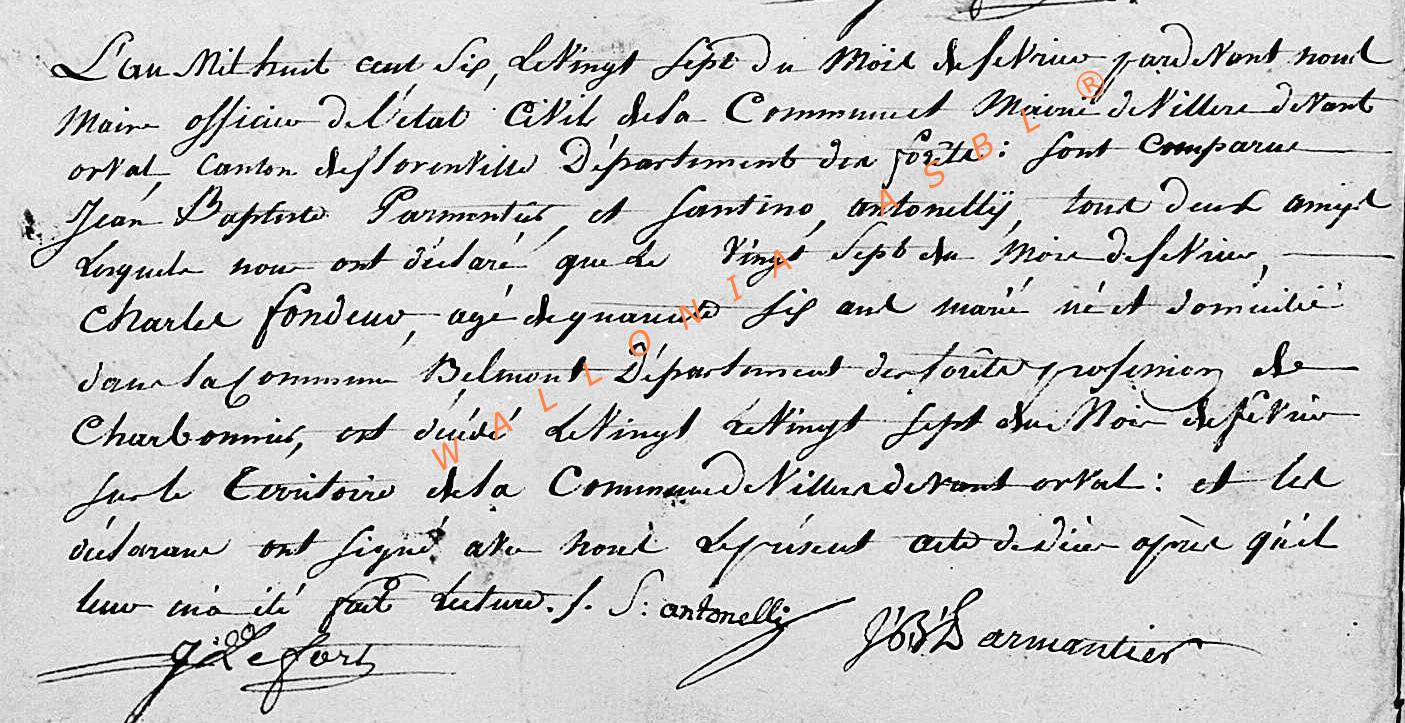 L'an Mil huit cent Six, Le Vingt Sept du Mois de feVrier pardeVant nous
Maire officier de l'état CiVil de la Commune et Mairie de Villers deVant
orVal, Canton de florenVille Département des forêts : sont Comparus
Jean Baptiste Parmentier, et Santino, antonelly, tous deux amijs
Lesquels nous ont déclaré que Le Vingt Sept du Mois de feVrier,
Charles fondeur, agé de quarante six ans marié né et domicilié
dans la Commune Belmont Département des forêts profession de
Charbonnier, est décédé Le Vingt Le Vingt sept du Mois de féVrier
sur le Territoire de la Commune de Villers deVant orVal : et les
déclarans ont signé avec nous Le présent acte de décès après qu'il
leur en a été fait Lecture. /. S: antonelli
J: Lefort J B Parmantier
WALLONIA ASBL ®